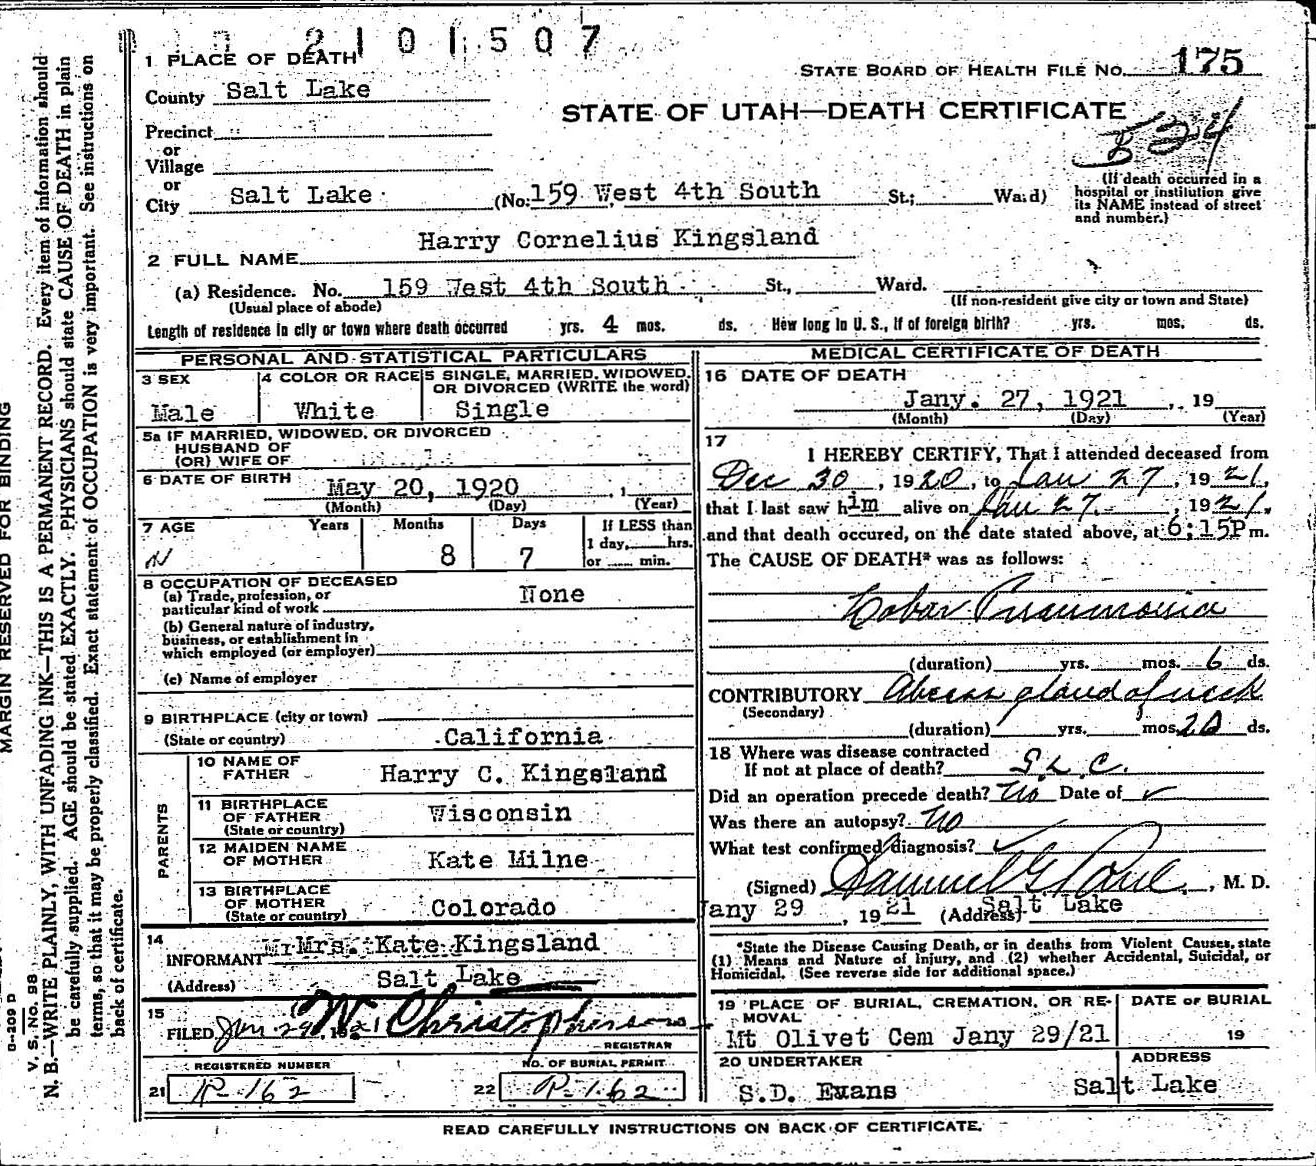 2101507
1 PLACE OF DEATH
STATE BOARD OF HEALTH FILE No. 175
County Salt Lake
STATE OF UTAH—DEATH CERTIFICATE
Precinct
or
Village
or
City Salt Lake (No. 159 West 4th South St.; Ward)
(If death occurred in a
hospital or institution give
its NAME instead of street
and number.)
2 FULL NAME Harry Cornelius Kingsland
(a) Residence. No. 159 West 4th South St., Ward.
(Usual place of abode) (If non-resident give city or town and State)
Length of residence in city or town where death occurred yrs. 4 mos. ds. How long in U. S., if of foreign birth? yrs. mos. ds.
PERSONAL AND STATISTICAL PARTICULARS
3 SEX 4 COLOR OR RACE 5 SINGLE, MARRIED, WIDOWED, OR DIVORCED (WRITE the word)
Male White Single
5a IF MARRIED, WIDOWED, OR DIVORCED
HUSBAND OF
(OR) WIFE OF
6 DATE OF BIRTH May 20, 1920
(Month) (Day) (Year)
7 AGE Years Months Days If LESS than
1 day, hrs.
or min.
8 7
8 OCCUPATION OF DECEASED
(a) Trade, profession, or
particular kind of work None
(b) General nature of industry,
business, or establishment in
which employed (or employer)
(c) Name of employer
9 BIRTHPLACE (city or town)
(State or country) California
PARENTS
10 NAME OF
FATHER Harry C. Kingsland
11 BIRTHPLACE
OF FATHER Wisconsin
(State or country)
12 MAIDEN NAME
OF MOTHER Kate Milne
13 BIRTHPLACE
OF MOTHER Colorado
(State or country)
14
INFORMANT Mrs. Kate Kingsland
(Address) Salt Lake
15
FILED Jan. 29, 1921 Christopherson
REGISTRAR
REGISTERED NUMBER NO. OF BURIAL PERMIT
21 R-162 22 R-162
MEDICAL CERTIFICATE OF DEATH
16 DATE OF DEATH
Jany. 27, 1921 , 19
(Month) (Day) (Year)
17
I HEREBY CERTIFY, That I attended deceased from
Dec 30, 1920, to Jan 27, 1921,
that I last saw him alive on Jan 27, 1921,
and that death occured, on the date stated above, at 6:15P m.
The CAUSE OF DEATH* was as follows:
Lobar Pneumonia
(duration) yrs. mos. 6 ds.
CONTRIBUTORY Abcess gland of neck
(Secondary)
(duration) yrs. mos. 20 ds.
18 Where was disease contracted
If not at place of death? S. L. C.
Did an operation precede death? No Date of ✓
Was there an autopsy? No
What test confirmed diagnosis? ✓
(Signed) Samuel G Paul, M. D.
Jany 29, 1921 (Address) Salt Lake
*State the Disease Causing Death, or in deaths from Violent Causes, state
(1) Means and Nature of Injury, and (2) whether Accidental, Suicidal, or
Homicidal. (See reverse side for additional space.)
19 PLACE OF BURIAL, CREMATION, OR REMOVAL DATE OF BURIAL
Mt Olivet Cem Jany 29/21 19
20 UNDERTAKER ADDRESS
S.D. Evans Salt Lake
READ CAREFULLY INSTRUCTIONS ON BACK OF CERTIFICATE.
MARGIN RESERVED FOR BINDING
V. S. No. 88
N. B.—WRITE PLAINLY, WITH UNFADING INK—THIS IS A PERMANENT RECORD. Every item of information should
be carefully supplied. AGE should be stated EXACTLY. PHYSICIANS should state CAUSE OF DEATH in plain
terms, so that it may be properly classified. Exact statement of OCCUPATION is very important. See instructions on
back of certificate.